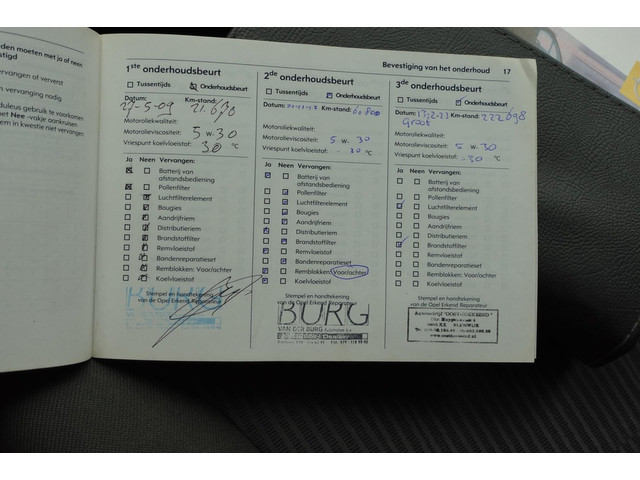 den moeten met ja of neen
stigd
ervangen of ververst
ervanging nodig
duleus gebruik te voorkomen
met Nee -vakje aankruisen
en in kwestie niet vervangen
Bevestiging van het onderhoud 17
1ste onderhoudsbeurt
Tussentijds Onderhoudsbeurt
Datum: Km-stand:
27-5-09 21.630
Motoroliekwaliteit:
Motorolieviscositeit: 5 w. 30
Vriespunt koelvloeistof: 30 °C
Ja Neen Vervangen:
Batterij van
afstandsbediening
Pollenfilter
Luchtfilterelement
Bougies
Aandrijfriem
Distributieriem
Brandstoffilter
Remvloeistof
Bandenreparatieset
Remblokken: Voor/achter
Koelvloeistof
Stempel en handtekening
van de Opel Erkend Reparateur
2de onderhoudsbeurt
Tussentijds Onderhoudsbeurt
Datum: Km-stand:
Motoroliekwaliteit:
Motorolieviscositeit: 5 w. 30
Vriespunt koelvloeistof: - 30 °C
Ja Neen Vervangen:
Batterij van
afstandsbediening
Pollenfilter
Luchtfilterelement
Bougies
Aandrijfriem
Distributieriem
Brandstoffilter
Remvloeistof
Bandenreparatieset
Remblokken: Voor/achter
Koelvloeistof
Stempel en handtekening
van de Opel Erkend Reparateur
BURG
VAN DER BURG
3de onderhoudsbeurt
Tussentijds Onderhoudsbeurt
Datum: 13-2-23 Km-stand: 222698
Groot
Motoroliekwaliteit:
Motorolieviscositeit: 5 w. 30
Vriespunt koelvloeistof: - 30 °C
Ja Neen Vervangen:
Batterij van
afstandsbediening
Pollenfilter
Luchtfilterelement
Bougies
Aandrijfriem
Distributieriem
Brandstoffilter
Remvloeistof
Bandenreparatieset
Remblokken: Voor/achter
Koelvloeistof
Stempel en handtekening
van de Opel Erkend Reparateur